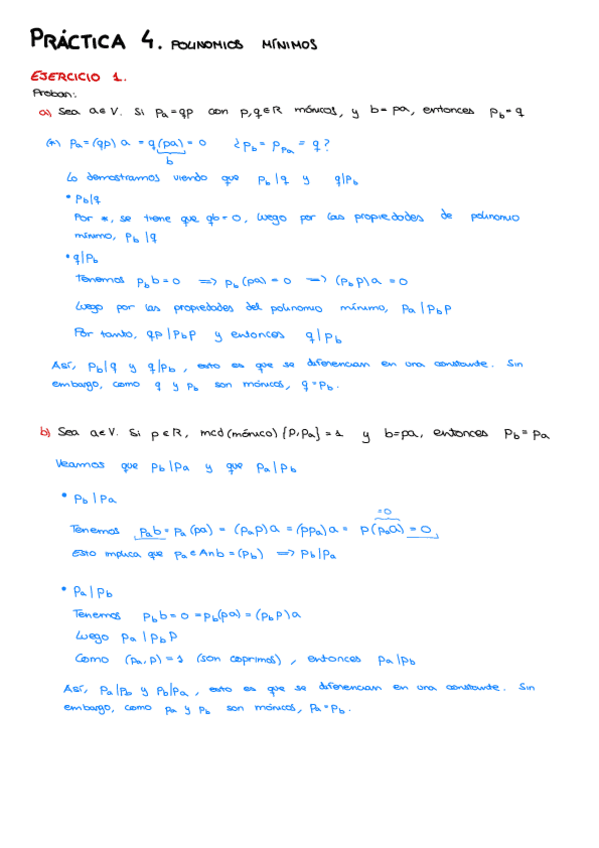 PRÁCTICA 4. POLINOMIOS MÍNIMOS
EJERCICIO 1.
Probar:
a) Sea a∈V. Si pₐ=qp con p,q∈R mónicos, y b=pa, entonces p_b=q
(*) pₐ=(qp)a = q(pa)=0 ¿p_b = p_pₐ = q?
b
Lo demostramos viendo que p_b|q y q|p_b
* p_b|q
Por *, se tiene que qb=0, luego por las propiedades de polinomio
mínimo, p_b|q
* q|p_b
Tenemos p_b b=0 => p_b(pa)=0 => (p_b p)a=0
Luego por las propiedades del polinomio mínimo, pₐ|p_b p
Por tanto, qp|p_b p y entonces q|p_b
Así, p_b|q y q|p_b, esto es que se diferencian en una constante. Sin
embargo, como q y p_b son mónicos, q=p_b.
b) Sea a∈V. Si p∈R, mcd(mónico){p,pₐ}=1 y b=pa, entonces p_b=pₐ
Veamos que p_b|pₐ y que pₐ|p_b
* p_b|pₐ
=0
Tenemos pₐb=pₐ(pa) = (pₐp)a=(ppₐ)a= p(pₐa)=0
Esto implica que pₐ∈An b=(p_b) => p_b|pₐ
* pₐ|p_b
Tenemos p_b b=0=p_b(pa)=(p_b p)a
Luego pₐ|p_b p
Como (pₐ,p)=1 (son coprimos), entonces pₐ|p_b
Así, pₐ|p_b y p_b|pₐ, esto es que se diferencian en una constante. Sin
embargo, como pₐ y p_b son mónicos, pₐ=p_b.